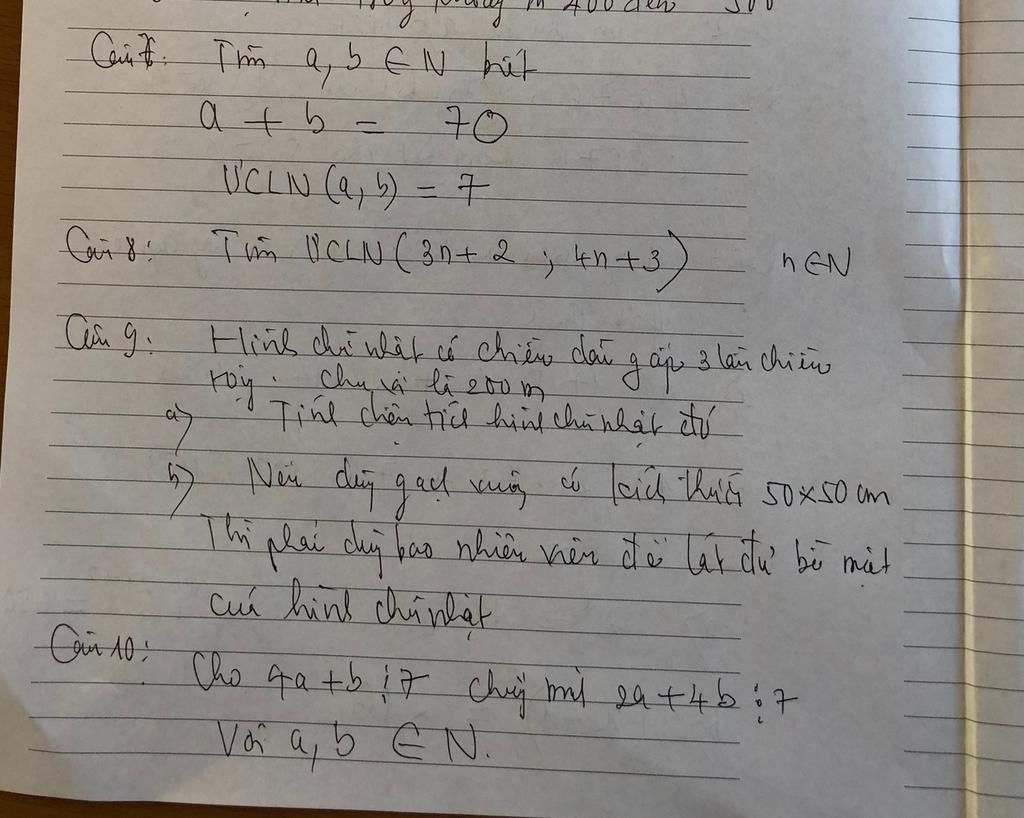 400 đến 500
Câu 7: Tìm a, b ∈ N biết
a + b = 70
ƯCLN (a, b) = 7
Câu 8: Tìm ƯCLN (3n + 2 ; 4n + 3) n ∈ N
Câu 9: Hình chữ nhật có chiều dài gấp 3 lần chiều
rộng. Chu vi là 200 m
a) Tính diện tích hình chữ nhật đó
b) Nếu dùng gạch vuông có kích thước 50 × 50 cm
Thì phải dùng bao nhiêu viên để lát đủ bề mặt
của hình chữ nhật
Câu 10: Cho 4a + b ⋮ 7 chứng minh 2a + 4b ⋮ 7
Với a, b ∈ N.